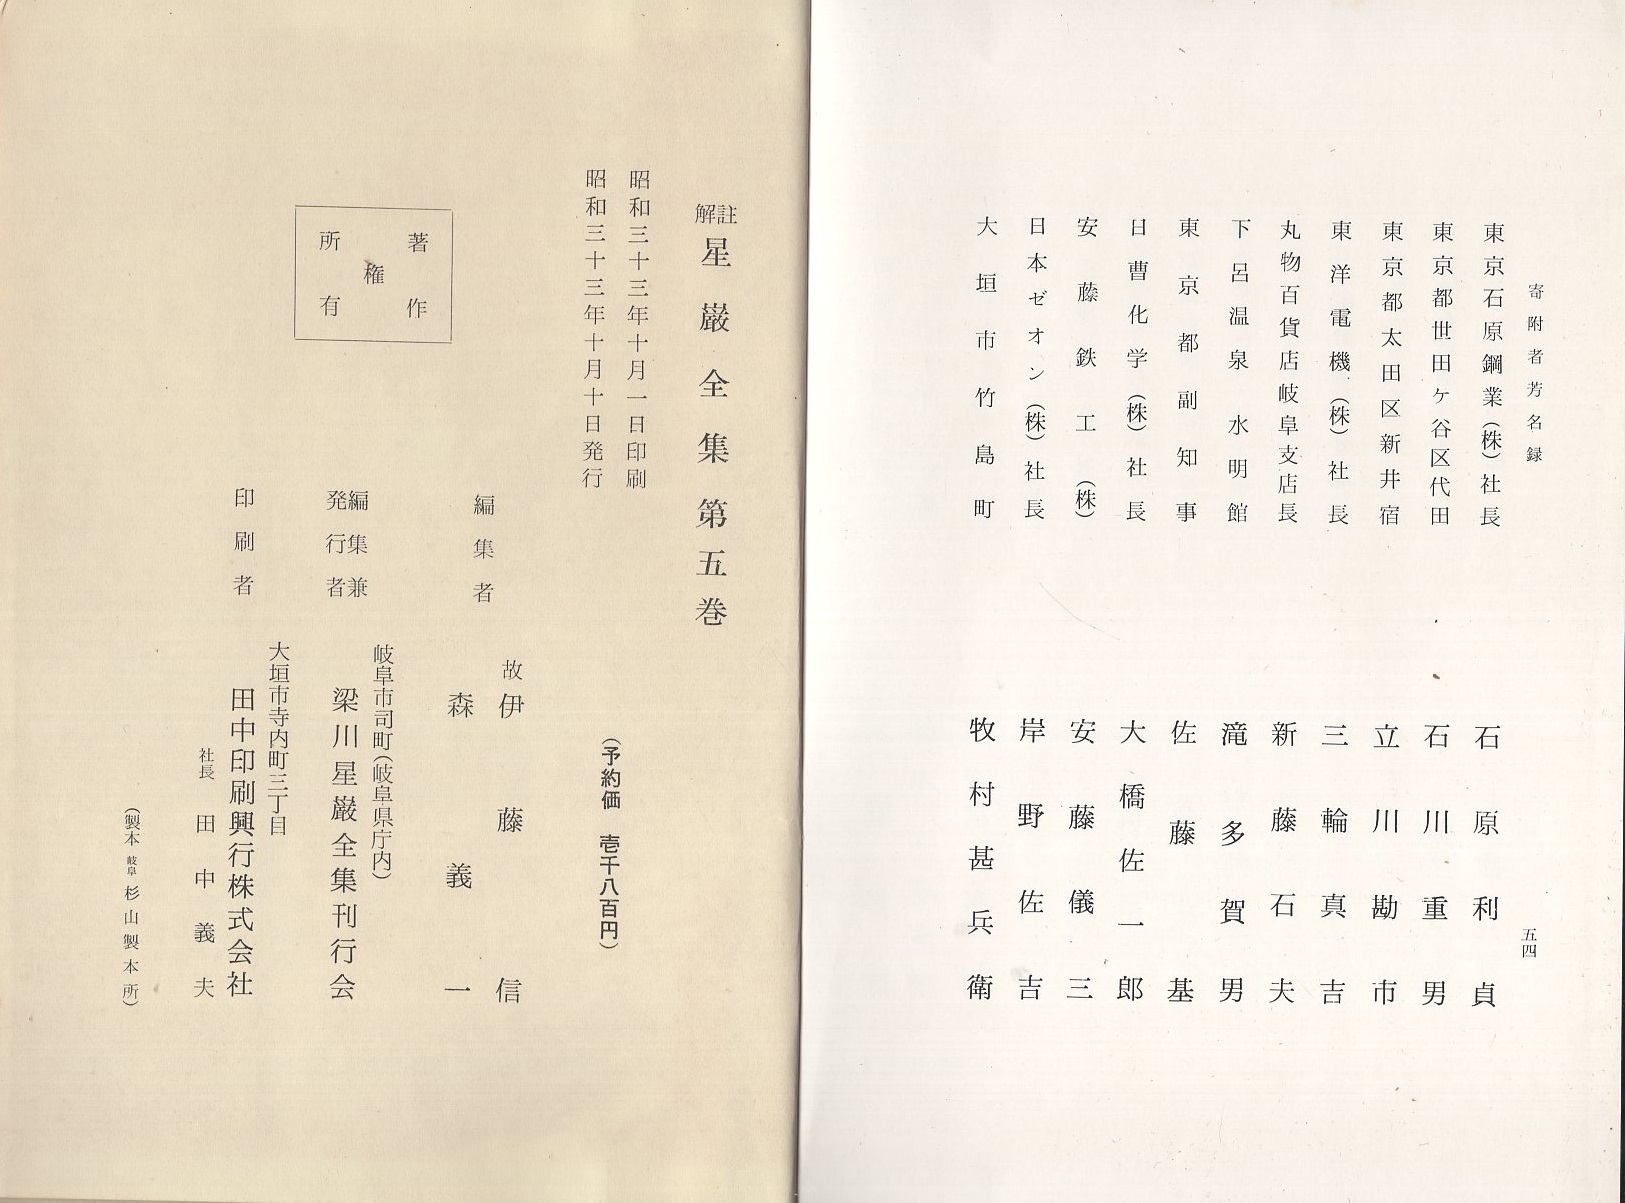 寄附者芳名録
東京石原鋼業(株)社長 石原利貞
東京都世田ケ谷区代田 石川重男
東京都太田区新井宿 立川勘市
東洋電機(株)社長 三輪真吉
丸物百貨店岐阜支店長 新藤石夫
下呂温泉 水明館 滝多賀男
東京都副知事 佐藤基
日曹化学(株)社長 大橋佐一郎
安藤鉄工(株) 安藤儀三
日本ゼオン(株)社長 岸野佐吉
大垣市竹島町 牧村甚兵衛
五四
註解 星巌全集第五巻
昭和三十三年十月一日印刷
昭和三十三年十月十日発行
(予約価 壱千八百円)
編集者 故伊藤信
森義一
岐阜市司町(岐阜県庁内)
編集兼発行者 梁川星巌全集刊行会
大垣市寺内町三丁目
印刷者 田中印刷興行株式会社
社長 田中義夫
(製本 岐阜 杉山製本所)
著作権所有